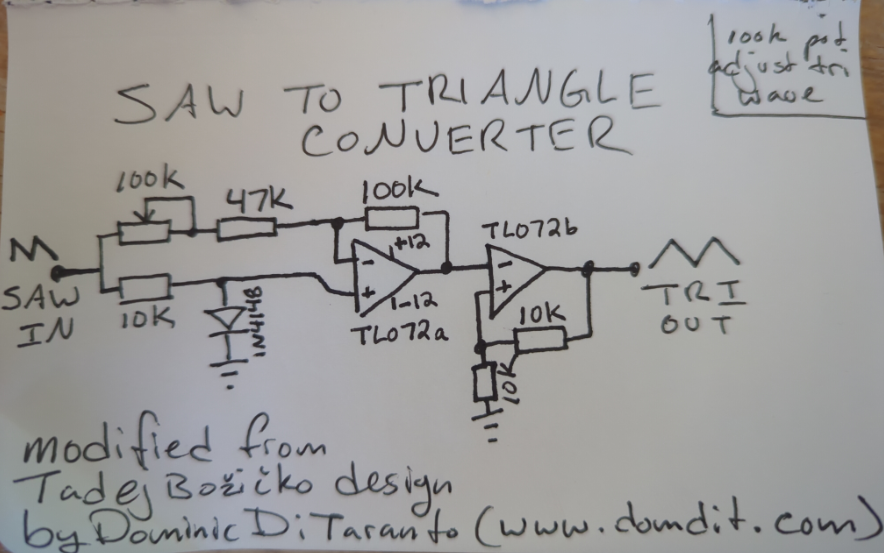 100k pot
adjust tri
wave
SAW TO TRIANGLE
CONVERTER
100K
47K
100K
+12
-
+
-12
TL072a
TL072b
-
+
SAW
IN
10K
1N4148
10K
10K
TRI
OUT
modified from
Tadej Božičko design
by Dominic DiTaranto (www.domdit.com)